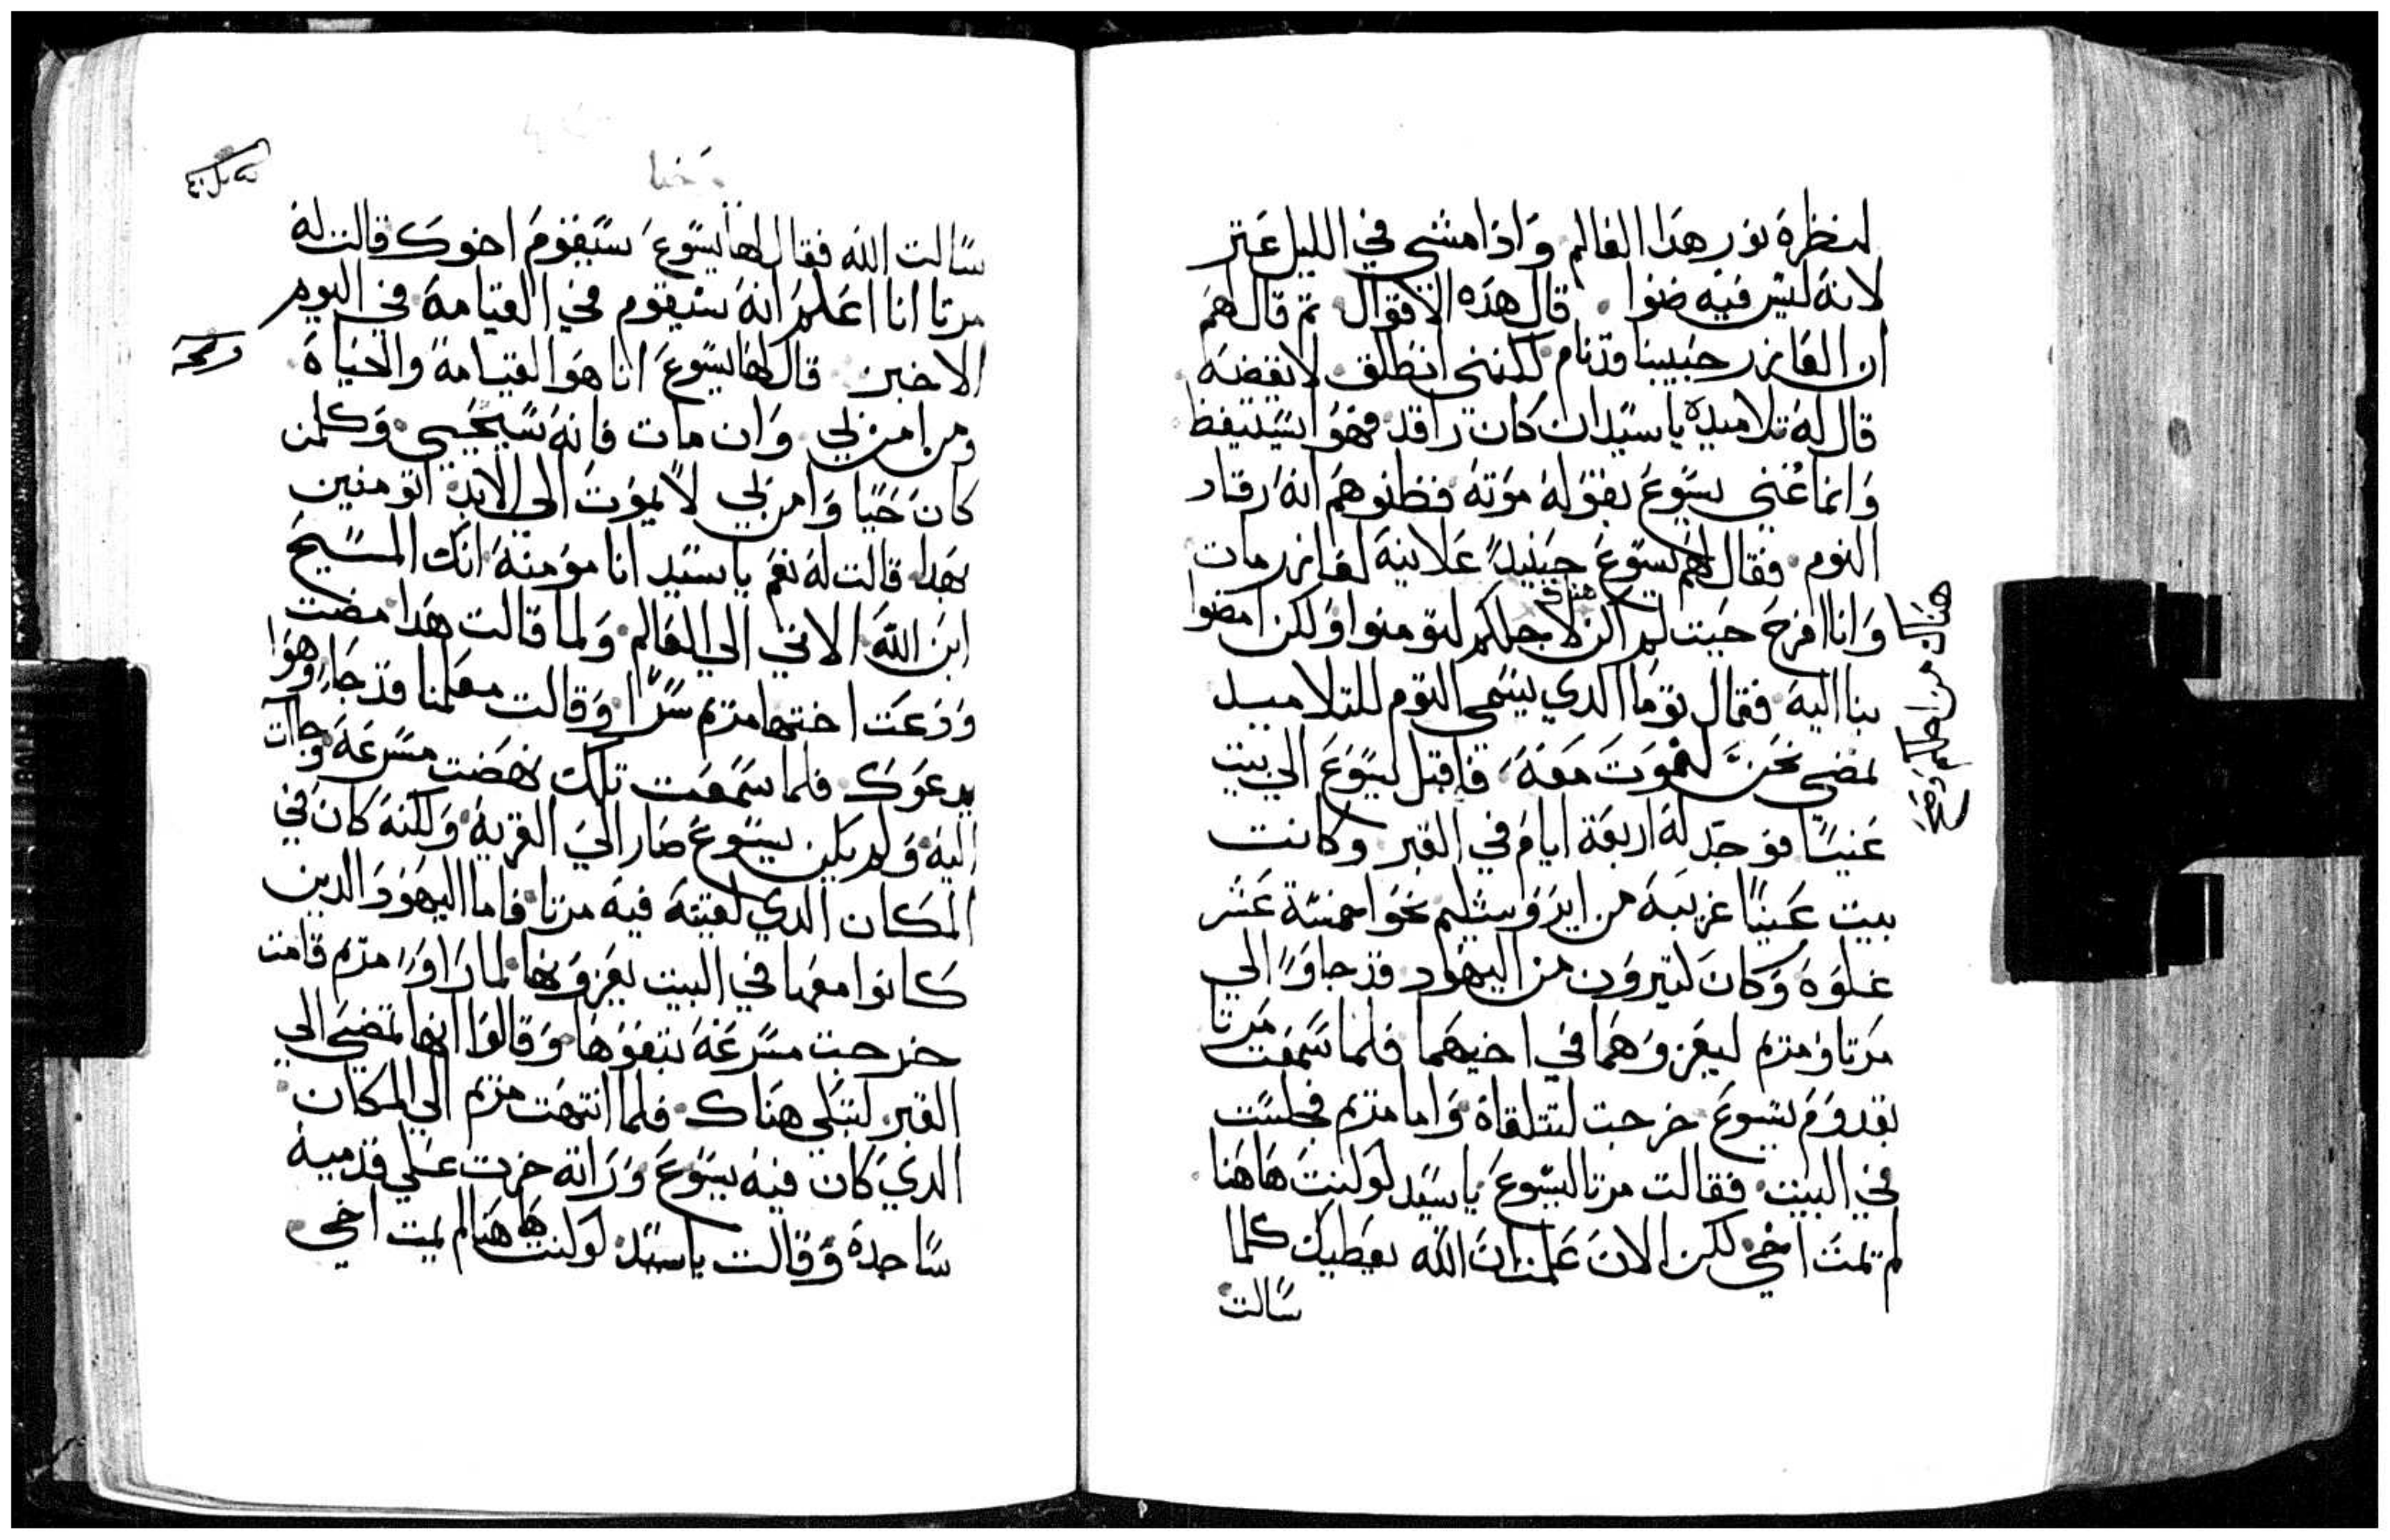 لنظرة نور هدا العالم وادا مشي في الليل عتر
لانه ليس فيه ضوا قال هده الاقوال تم قال لهم
ان العازر حبيبنا قد نام لكنني انطلق لايقضه
قال له تلاميده يا سيد ان كان راقد فهوا سيتيقظ
وانما عني يسوع بقوله موته فظنوا هم انه رقاد
النوم فقال لهم يسوع حينيدً علانية لعازر مات
وانا افرح حيت لم اكن هناك لاجلكم لتومنوا ولكن امضوا
بنا اليه فقال توما الدي يسمي التوم للتلاميد
نمضي نحن لنموت معه فاقبل يسوع الي بيت
عنيا فوجد له اربعة ايام في القبر وكانت
بيت عنيا قريبه من ايروشليم نحوا خمسة عشر
غلوه وكان كتيرون من اليهود قد جاوا الي
مرتا ومريم ليعزوهما في اخيهما فلما سمعت مرتا
بقدوم يسوع خرجت لتتلقاه واما مريم فجلست
في البيت فقالت مرتا ليسوع يا سيد لو كنت هاهنا
لم يمت اخي لكن الان علمت ان الله يعطيك كلما
سالت
هناك من اجلكم صح
يوحنا
سالت الله فقال لها يسوع سيقوم اخوك قالت له
مرتا انا اعلم انه سيقوم في القيامة في اليوم
الاخير قال لها يسوع انا هو القيامة والحياة
ومن امن بي وان مات فانه سيحيي وكلمن
كان حيا وامن بي لا يموت الي الابد اتومنين
بهدا قالت له نعم يا سيد انا مومنة انك المسيح
ابن الله الاتي الي العالم ولما قالت هدا مضت
ودعت اختها مريم سرا وقالت معلمنا قد جا وهوا
يدعوك فلما سمعت تلك نهضت مسرعة وجات
اليه ولم يكن يسوع صار الي القرية ولكنه كان في
المكان الدي لقيته فيه مرتا فاما اليهود الدين
كانوا معها في البيت يعزونها لما راوا مريم قامت
خرجت مسرعة تبعوها وقالوا انها تمضي الي
القبر لتبكي هناك فلما انتهت مريم الي المكان
الدي كان فيه يسوع وراته خرت علي قدميه
ساجدة وقالت يا سيد لو كنت هاهنا لم يمت اخي